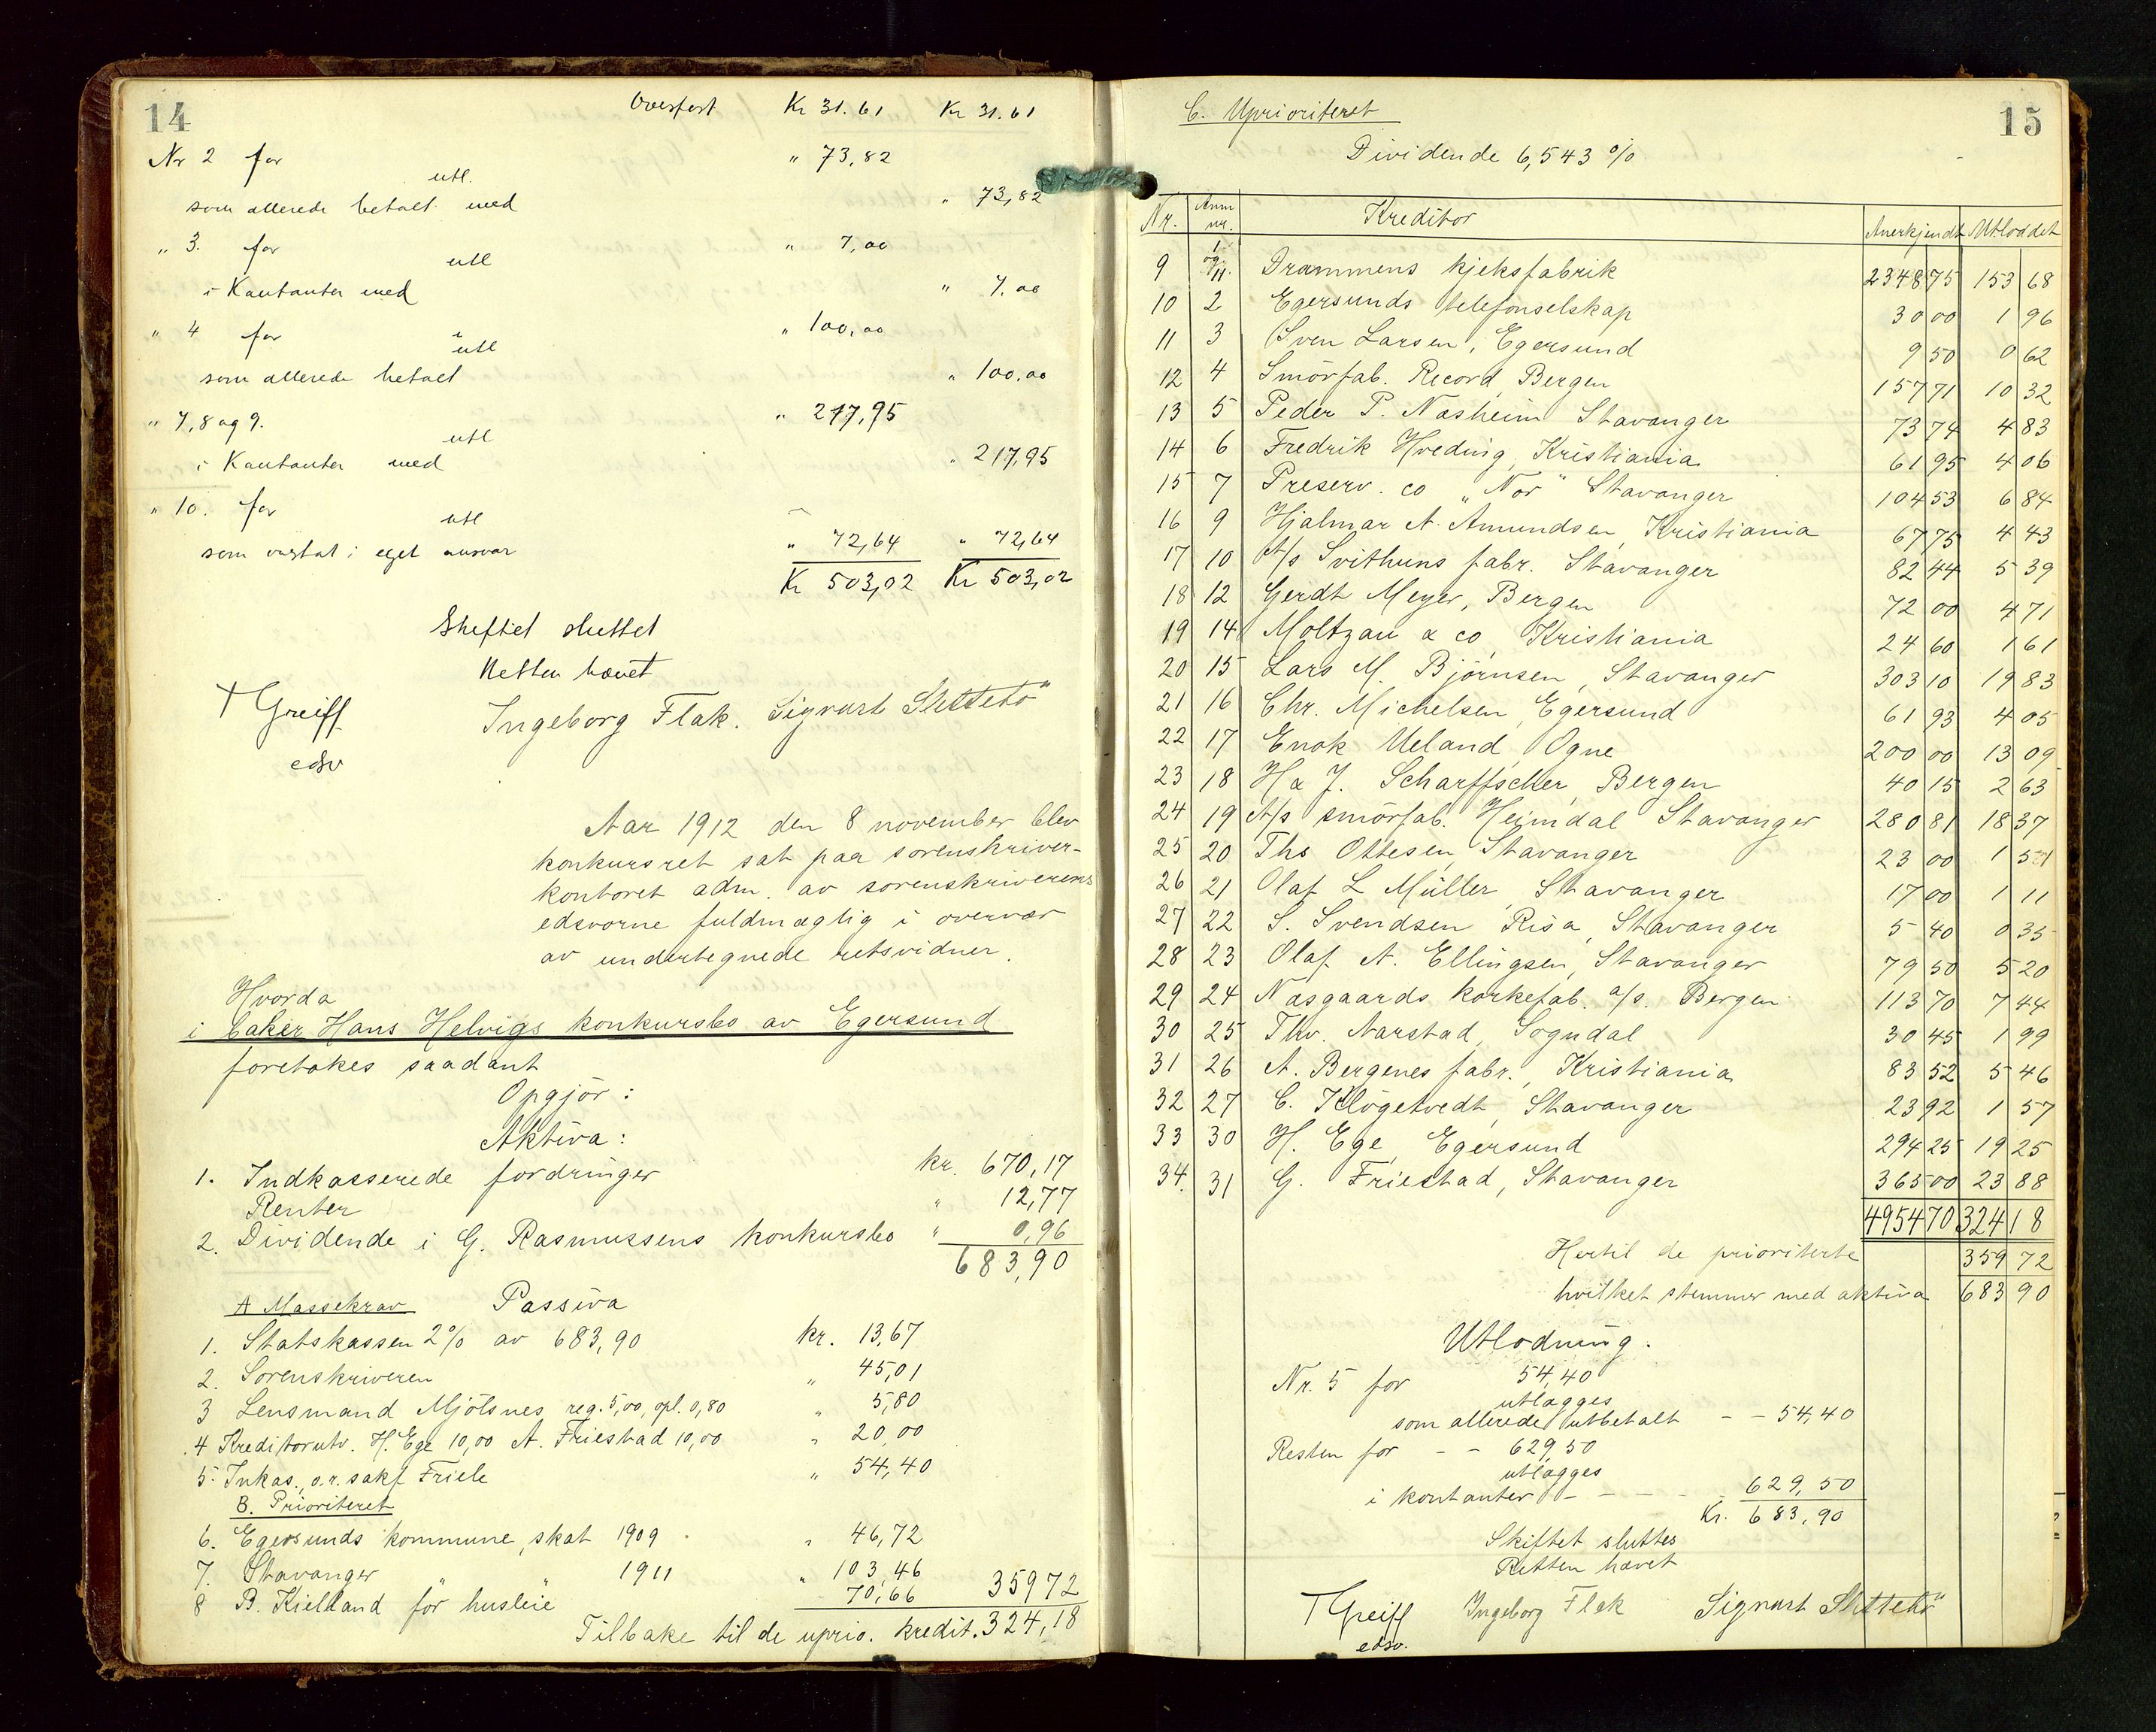 14
Overført Kr 31.61 Kr 31.61
Nr 2 for " 73,82
utl.
som allerede betalt med " 73,82
" 3. for " 7,00
utl
i Kontanter med " 7,00
" 4 for " 100,00
utl
som allerede betalt " 100,00
" 7,8 og 9. " 217,95
utl
i Kontanter med " 217,95
" 10. for
utl
som overtat i eget ansvar " 72,64 " 72,64
Kr 503,02 Kr 503,02
Skiftet sluttet
Retten hævet
T Greiff Ingeborg Flak. Sigvart Slettebö
edsv
Aar 1912 den 8 november blev
konkursret sat paa sorenskriver-
kontoret adm. av sorenskriverens
edsvorne fuldmægtig i overvær
av undertegnede retsvidner.
Hvorda
i baker Hans Helvigs konkursbo av Egersund
foretokes saadant
Opgjör:
Aktiva:
1. Indkasserede fordringer kr. 670,17
Renter " 12,77
2. Dividende i G. Rasmussens konkursbo " 0,96
683,90
A Massekrav Passiva
1. Statskassen 2% av 683,90 kr. 13,67
2. Sorenskriveren " 45,01
3 Lensmand Mjölsnes reg. 5,00, opl. 0,80 " 5,80
4 Kreditorutv. H. Ege 10,00 A. Friestad 10,00 " 20,00
5. Inkas., o.r. sakf Friele " 54,40
B. Prioriteret
6. Egersunds kommune, skat 1909 " 46,72
7. Stavanger " " 1911 " 103,46
8 B. Kielland for husleie 70,66 35972
Tilbake til de uprio. kredit. 324,18
15
C. Uprioriteret
Dividende 6,543 %
Nr. Anm nr. Kreditor Anerkjendt Utloddet
9 1 og 11. Drammens kjeksfabrik 2348 75 153 68
10 2 Egersunds telefonselskap 30 00 1 96
11 3 Sven Larsen, Egersund 9 50 0 62
12 4 Smörfab. Record, Bergen 157 71 10 32
13 5 Peder P. Næsheim Stavanger 73 74 4 83
14 6 Fredrik Hveding, Kristiania 61 95 4 06
15 7 Preserv. co „Nor" Stavanger 104 53 6 84
16 9 Hjalmar A. Amundsen, Kristiania 67 75 4 43
17 10 A/s Svithuns fabr. Stavanger 82 44 5 39
18 12 Gerdt Meyer, Bergen 72 00 4 71
19 14 Moltzau & co, Kristiania 24 60 1 61
20 15 Lars M. Bjørnsen, Stavanger 303 10 19 83
21 16 Chr. Michelsen, Egersund 61 93 4 05
22 17 Enok Ueland, Ogne 200 00 13 09
23 18 H & J. Scharffscher, Bergen 40 15 2 63
24 19 A/s smörfab. Heimdal Stavanger 280 81 18 37
25 20 Ths Ottesen, Stavanger 23 00 1 51
26 21 Olaf L Müller, Stavanger 17 00 1 11
27 22 S. Svendsen Risa, Stavanger 5 40 0 35
28 23 Olaf A. Ellingsen, Stavanger 79 50 5 20
29 24 Næsgaards korkefab. a/s. Bergen 113 70 7 44
30 25 Thv. Aarstad, Sogndal 30 45 1 99
31 26 A. Bergenes fabr., Kristiania 83 52 5 46
32 27 C. Klögetvedt, Stavanger 23 92 1 57
33 30 H. Ege, Egersund 294 25 19 25
34. 31 G. Friestad, Stavanger 365 00 23 88
4954 70 324 18
Hertil de prioriterte 359 72
hvilket stemmer med aktiva 683 90
Utlodning.
Nr. 5 for 54,40
utlægges
som allerede utbetalt - - 54,40
Resten for - - 629,50
utlægges
i kontanter - - - - 629,50
Kr. 683,90
Skiftet sluttes
Retten hævet
T Greiff Ingeborg Flak Sigvart Slettebö
edsv.